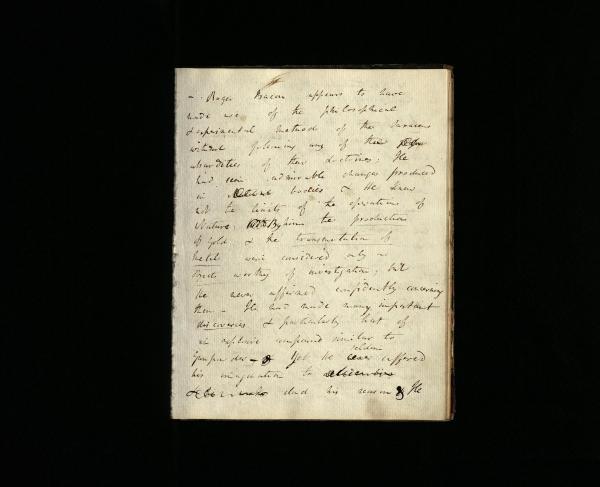 - Roger Bacon appears to have
made use of the philosophical
& experimental methods of the Saracens
without following any of the
absurdities of their doctrines; He
had seen admirable changes produced
in bodies & He knew
not the limits of the operations of
Nature; By him the production
of gold & the transmutation of
metals were considered only as
worthy of investigation; but
He never affirmed confidently concerning
them - He had made many important
discoveries & particularly that of
an explosive compound similar to
gunpowder - Yet he seldom suffered
his imagination to
delude his reason & He